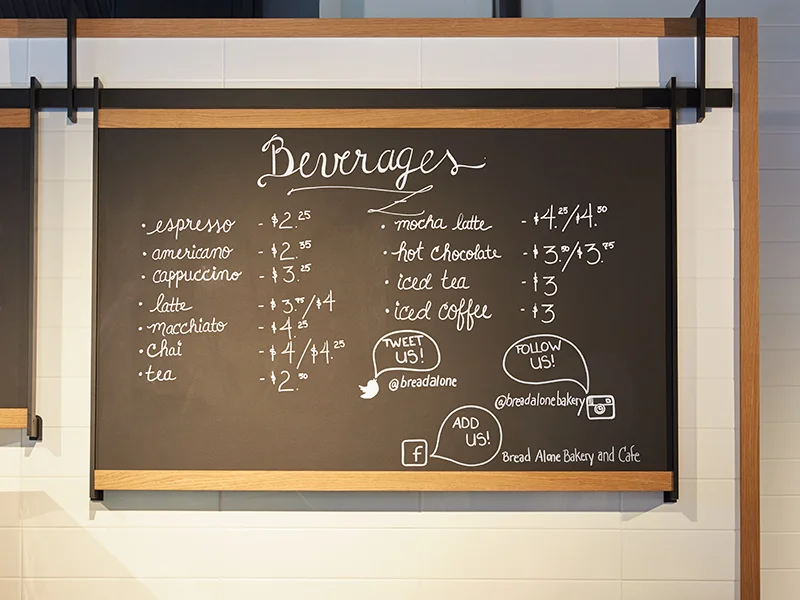 Beverages
• espresso - $2.25
• americano - $2.35
• cappuccino - $3.25
• latte - $3.75/$4
• macchiato - $4.25
• chai - $4/$4.25
• tea - $2.50
• mocha latte - $4.25/$4.50
• hot chocolate - $3.50/$3.75
• iced tea - $3
• iced coffee - $3
TWEET
US!
@breadalone
FOLLOW
US!
@breadalonebakery
ADD
US!
f
Bread Alone Bakery and Cafe